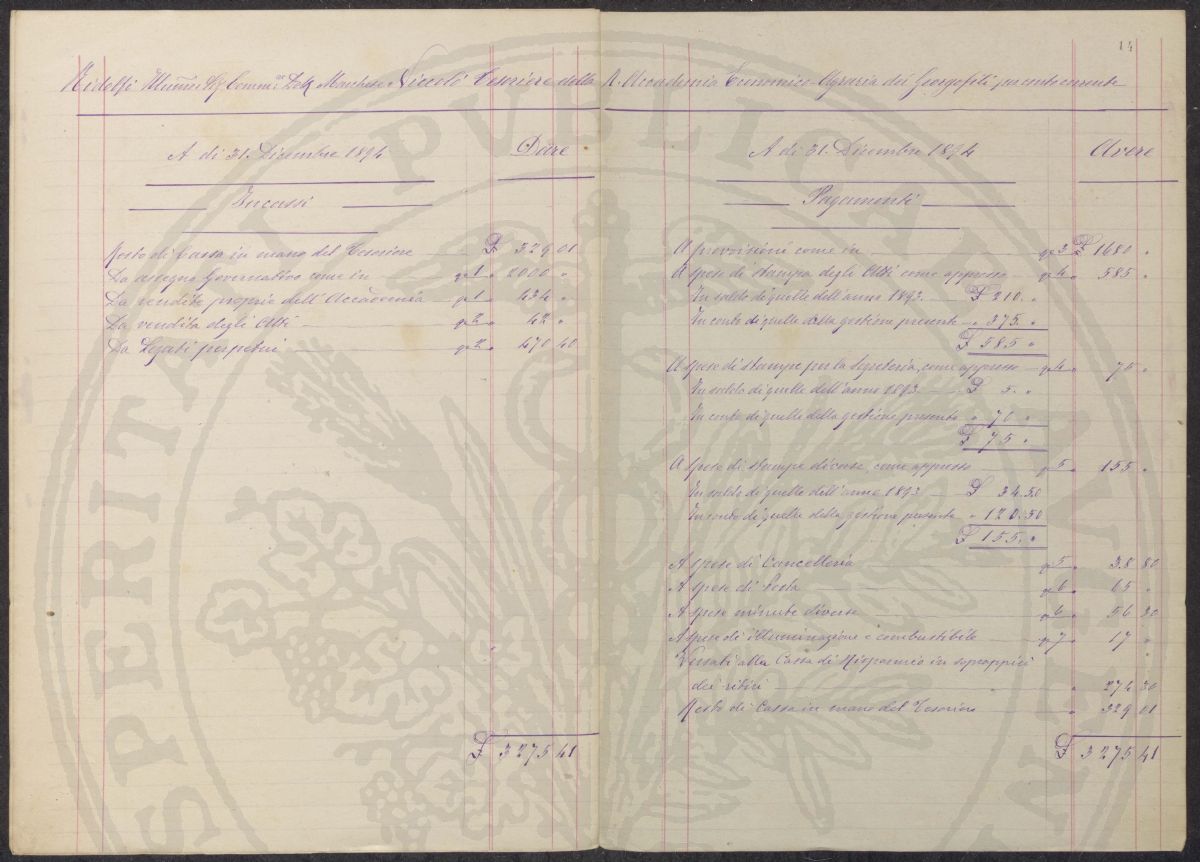 14
Ridolfi Comm. Marchese Niccolò Tesoriere della R. Accademia Economico Agraria dei Georgofili, suo conto corrente
A dì 31. Dicembre 1894 Dare
Incassi
Resto di Cassa in mano del Tesoriere £ 329 01
Da assegno Governativo come in 1 " 2000 "
Da rendite proprie dell'Accademia 1 " 434 "
Da vendita degli Atti 2 " 42 "
Da Legati perpetui 2 " 470 40
£ 3275 41
A dì 31. Dicembre 1894 Avere
Pagamenti
A provvisioni come in 3 £ 1680 "
A spese di stampa degli Atti come appresso 4 " 585 "
In saldo di quelle dell'anno 1893 £ 210. "
In conto di quelle della gestione presente " 375. "
£ 585 "
A spese di stampe per la Segreteria, come appresso 4 " 75 "
In saldo di quelle dell'anno 1893 £ 5. "
In conto di quelle della gestione presente " 70 "
£ 75 "
A spese di stampe diverse, come appresso 5 " 155 "
In saldo di quelle dell'anno 1893 £ 34.50
In conto di quelle della gestione presente " 120.50
£ 155. "
A spese di Cancelleria 5 " 38 80
A spese di Posta 6 " 65 "
A spese minute diverse 6 " 56 30
A spese di illuminazione e combustibile 7 " 17 "
Versati alla Cassa di Risparmio in
dei ritiri " 274 30
Resto di Cassa in mano del Tesoriere " 329 01
£ 3275 41